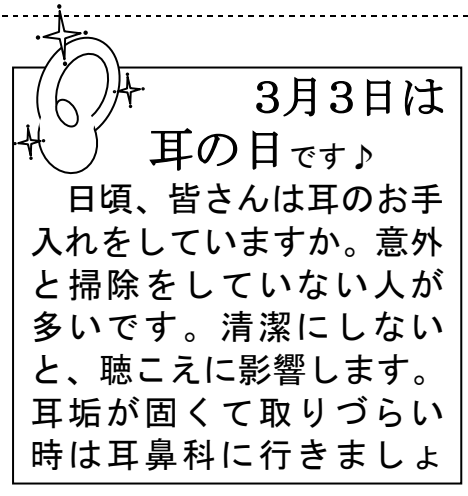 3月3日は
耳の日です♪
日頃、皆さんは耳のお手
入れをしていますか。意外
と掃除をしていない人が
多いです。清潔にしない
と、聴こえに影響します。
耳垢が固くて取りづらい
時は耳鼻科に行きましょ